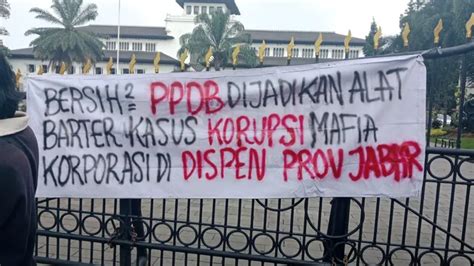 BERSIH² PPDB DIJADIKAN ALAT
BARTER KASUS KORUPSI MAFIA
KORPORASI DI DISPEN PROV JABAR